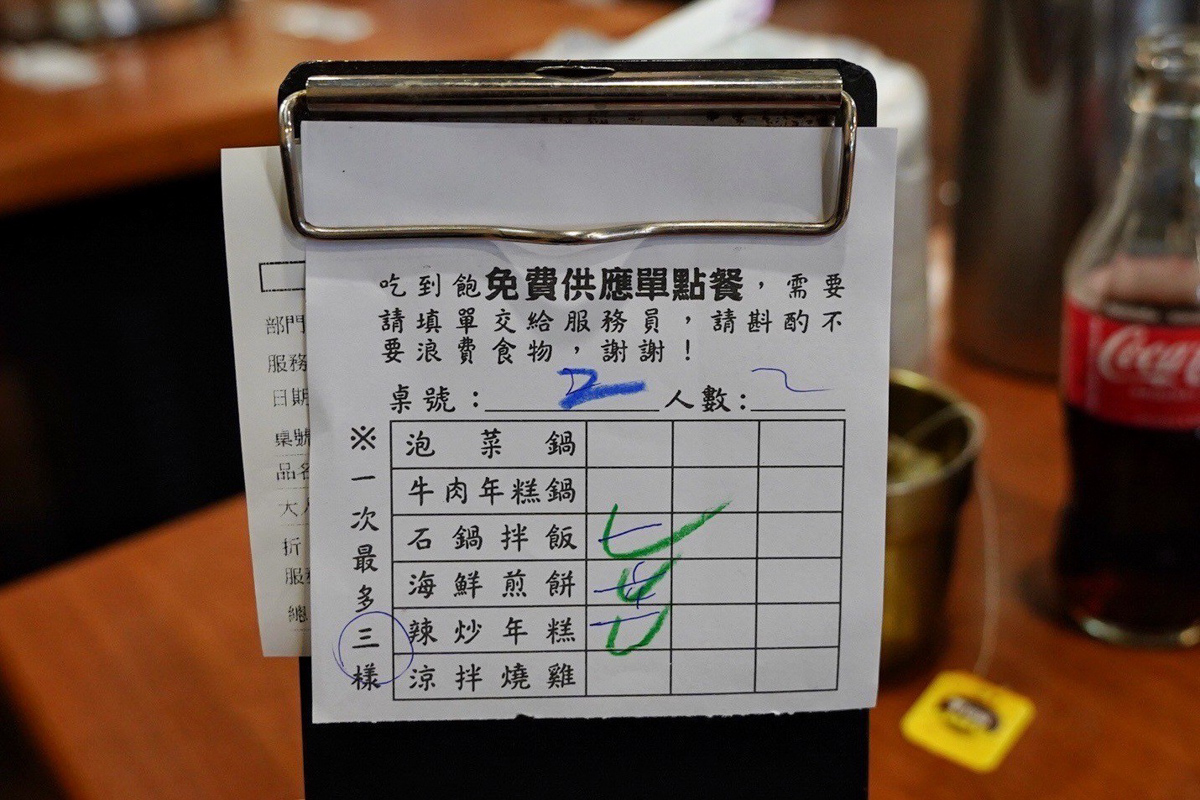 吃到飽免費供應單點餐，需要
請填單交給服務員，請斟酌不
要浪費食物，謝謝！
桌號：2 人數：2
※一次最多三樣
泡菜鍋
牛肉年糕鍋
石鍋拌飯
海鮮煎餅
辣炒年糕
涼拌燒雞
部門
服務
日期
桌號
品名
大人
折
服務
總
Coca-Cola